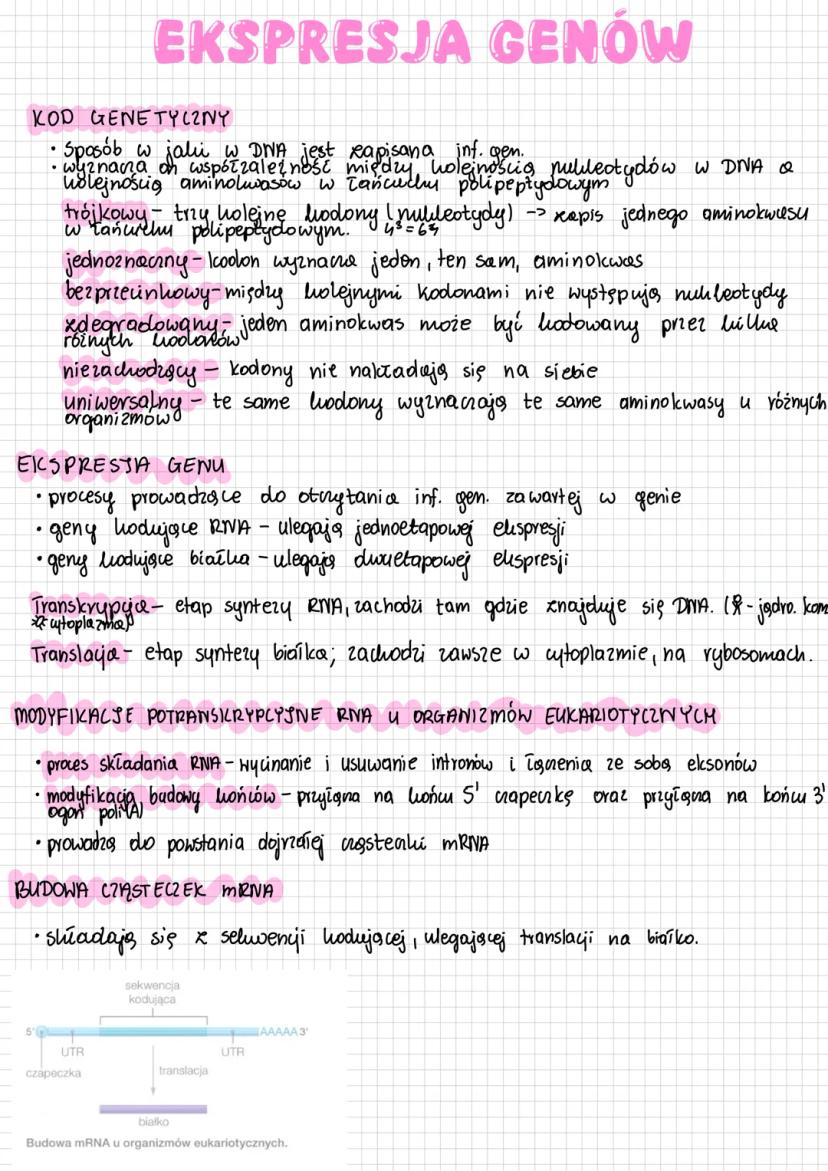 EKSPRESJA GENÓW
KOD GENETYCZNY
• sposób w jaki w DNA jest zapisana inf. gen.
• wyznacza on współzależność między kolejnością nukleotydów w DNA a
kolejnością aminokwasów w łańcuchu polipeptydowym
trójkowy - trzy kolejne kodony (nukleotydy) -> zapis jednego aminokwasu
w łańcuchu polipeptydowym. 4³ = 64
jednoznaczny - kodon wyznacza jeden, ten sam, aminokwas
bezprzecinkowy - między kolejnymi kodonami nie występują nukleotydy
zdegradowany - jeden aminokwas może być kodowany przez kilka
różnych kodonów
niezachodzący - kodony nie nakładają się na siebie
uniwersalny - te same kodony wyznaczają te same aminokwasy u różnych
organizmów
EKSPRESJA GENU
• procesy prowadzące do otczytania inf. gen. zawartej w genie
• geny kodujące RNA - ulegają jednoetapowej ekspresji
• geny kodujące białka - ulegają dwuetapowej ekspresji
Transkrypcja - etap syntezy RNA, zachodzi tam gdzie znajduje się DNA. ( - jądro. kom
cytoplazma)
Translacja - etap syntezy białka; zachodzi zawsze w cytoplazmie, na rybosomach.
MODYFIKACJE POTRANSKRYPCYJNE RNA U ORGANIZMÓW EUKARIOTYCZNYCH
• proces składania RNA - wycinanie i usuwanie intronów i łączenia ze sobą eksonów
• modyfikacja budowy końców - przyłącza na końcu 5' czapeczkę oraz przyłącza na końcu 3'
ogon poli(A)
• prowadzą do powstania dojrzałej cząsteczki mRNA
BUDOWA CZĄSTECZEK mRNA
• składają się z sekwencji kodującej, ulegającej translacji na białko.
sekwencja
kodująca
5' AAAAA 3'
UTR UTR
czapeczka translacja
białko
Budowa mRNA u organizmów eukariotycznych.